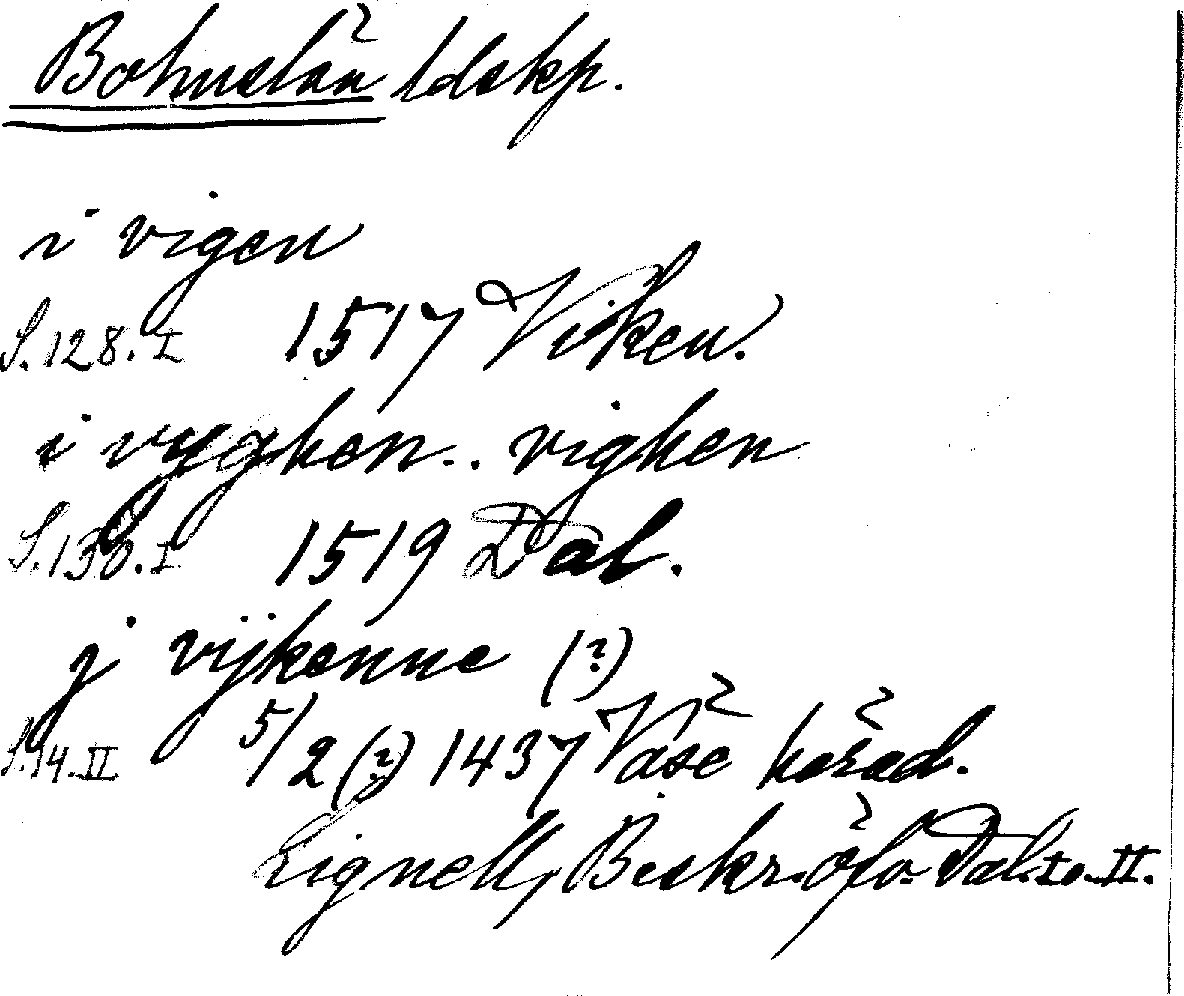 Bohuslän ldskp.
i vigen
S. 128. I 1517 Viken.
i vyghen .. vighen
S. 130. I 1519 Dal.
j vijkenne (?)
S. 14. II 5/2 (?) 1437 Väse härad.
Lignell, Beskr. öfv. Dal. I o. II.